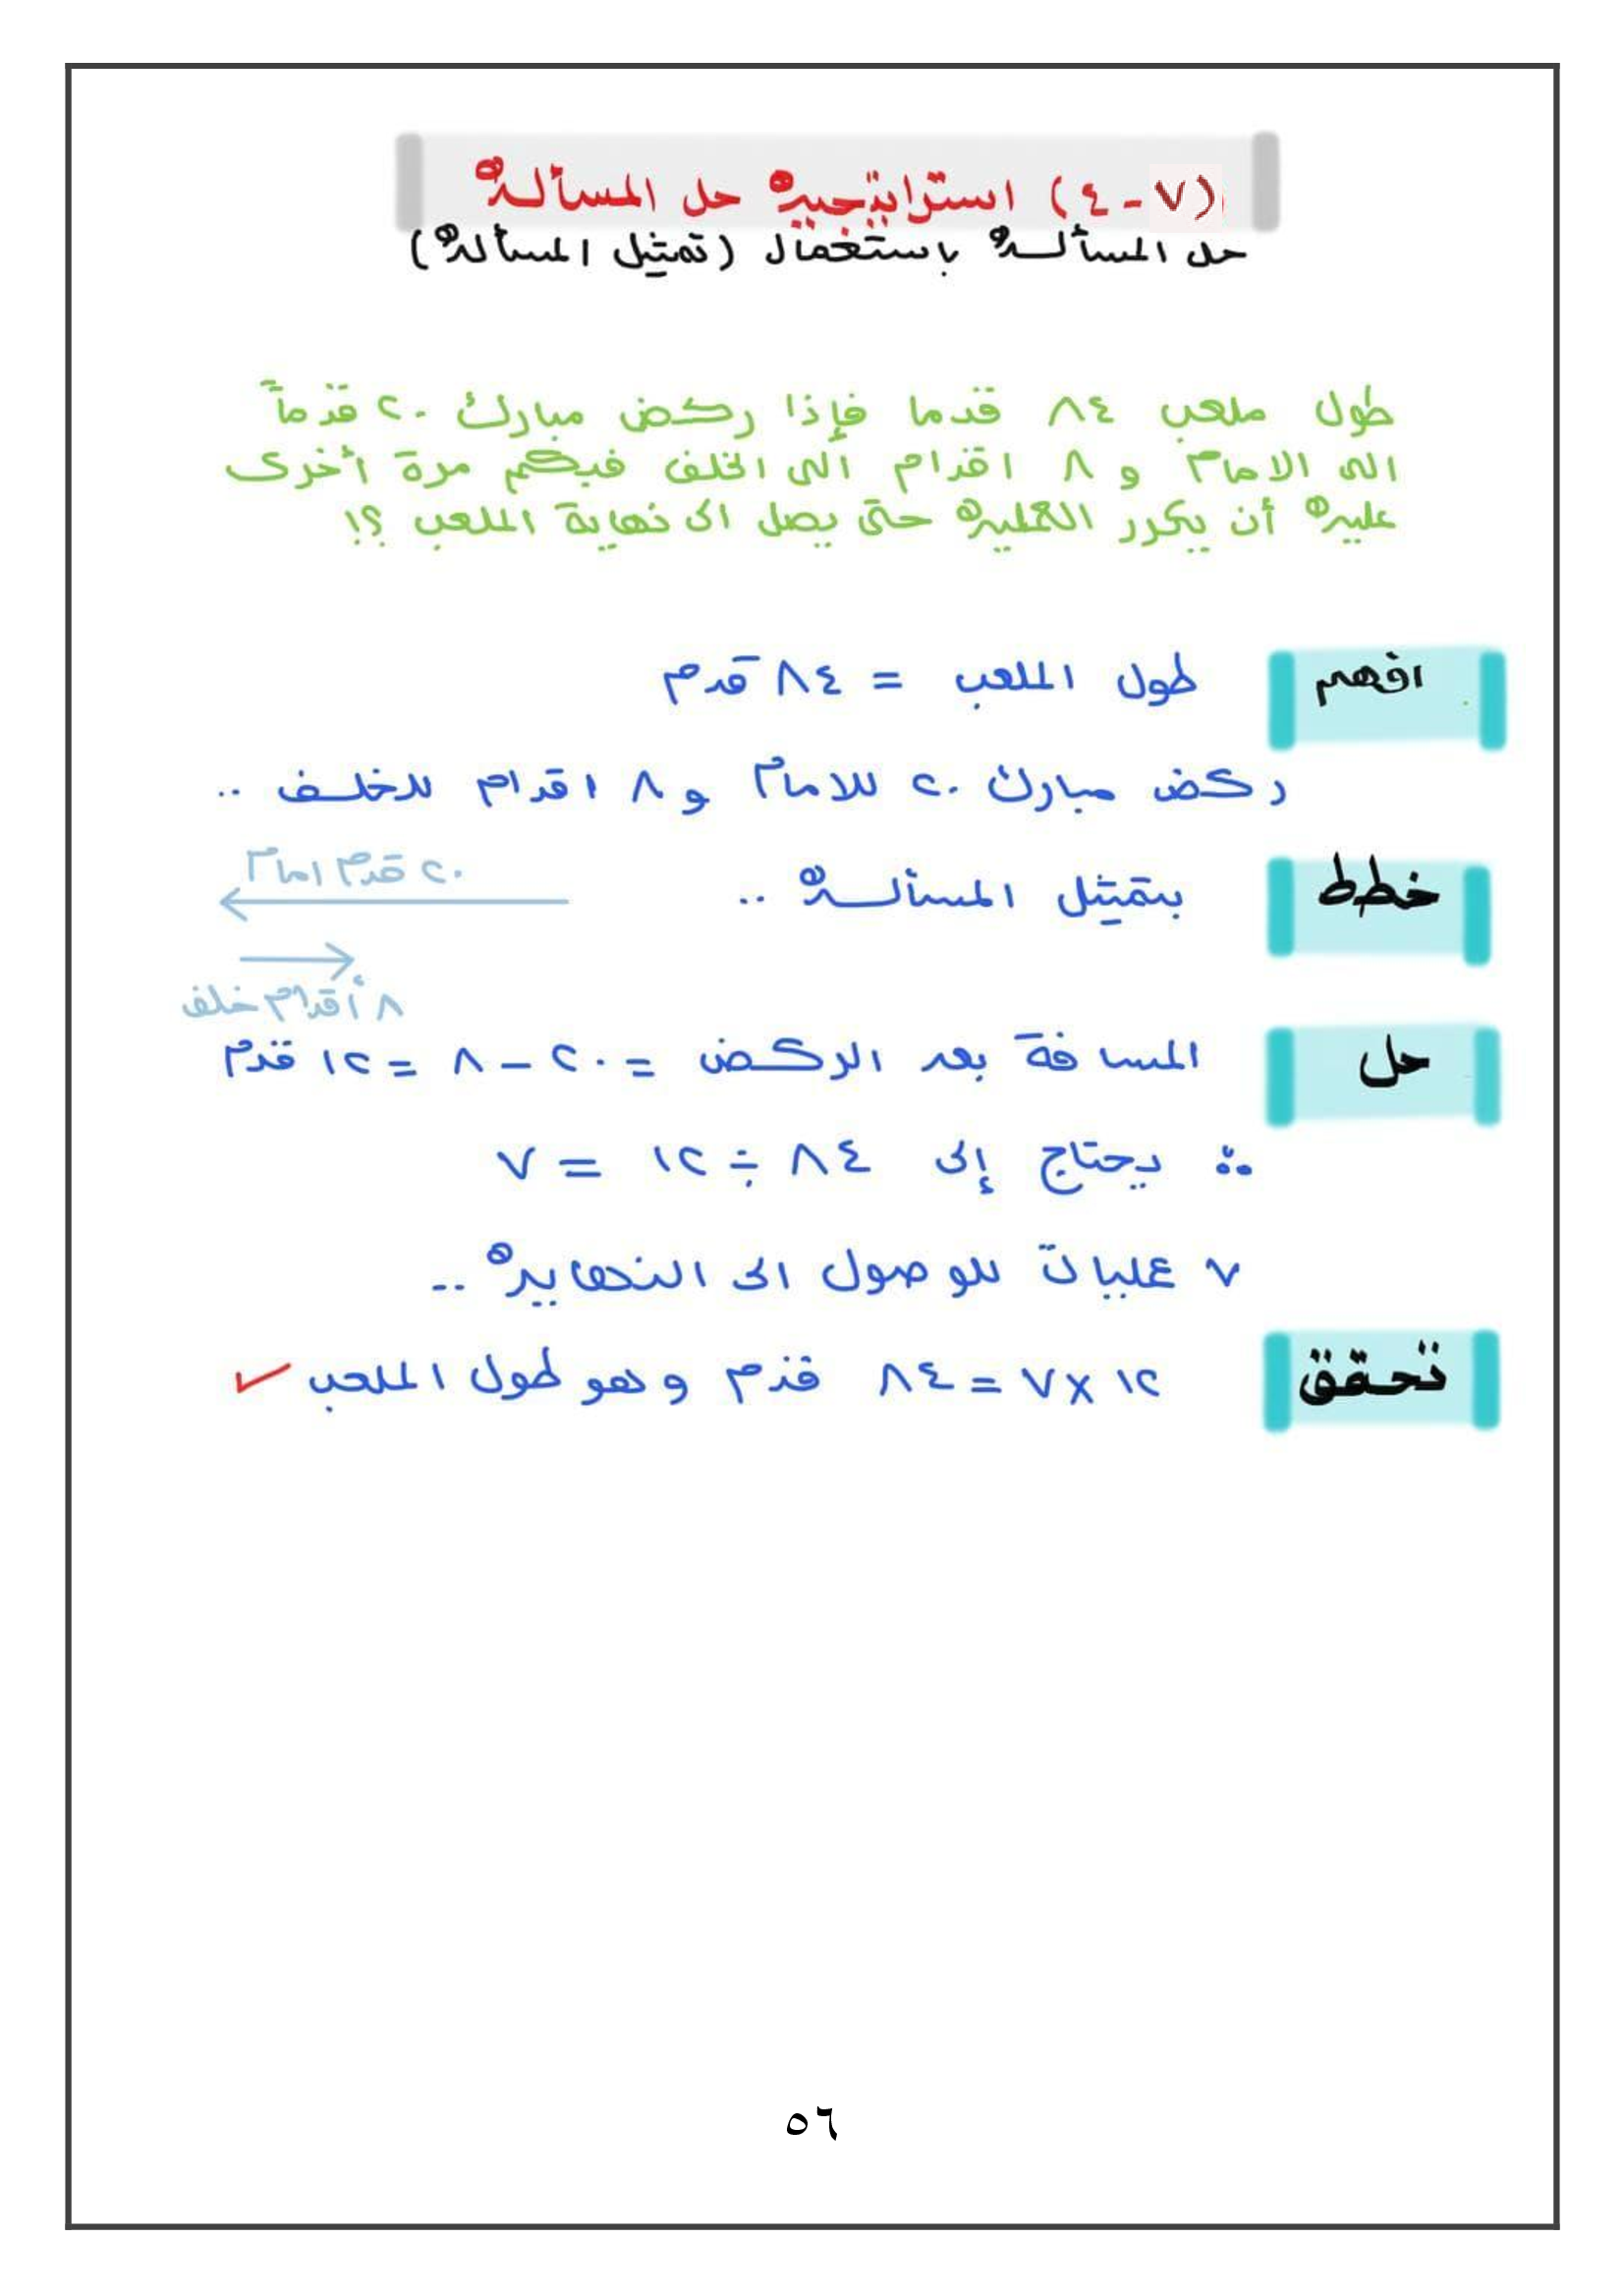 (٧-٤) استراتيجيه حل المسألة
حل المسألة باستعمال (تمثيل المسألة)
طول ملعب ٨٤ قدما فإذا ركض مبارك ٢٠ قدماً
الى الامام و ٨ اقدام الى الخلف فيكم مرة أخرى
عليه أن يكرر العمليه حتى يصل الى نهاية الملعب ؟!
افهم
طول الملعب = ٨٤ قدم
ركض مبارك ٢٠ للامام و ٨ اقدام للخلف ..
خطط
بتمثيل المسألة ..
٢٠ قدم امام
٨ أقدام خلف
حل
المسافة بعد الركض = ٢٠ - ٨ = ١٢ قدم
∴ يحتاج إلى ٨٤ ÷ ١٢ = ٧
٧ عمليات للوصول الى النهايه ..
تحقق
١٢ × ٧ = ٨٤ قدم و هو طول الملعب ✓
٥٦